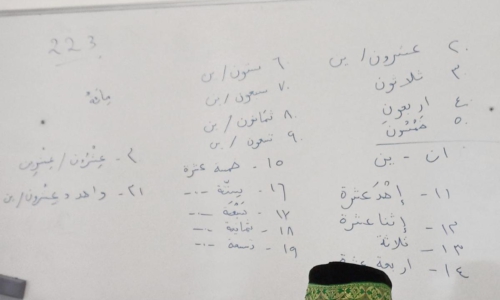 223
٢. عشرون/ين
٣ ثلاثون
٤ اربعون
٥. خمسون
ان - ين
١١- إحدَ عشرة
١٢- إثنا عشرة
١٣- ثلاثة
١٤- اربعة عشرة
٦ ستون/ين
٧. سبعون/ين
٨. ثمانون/ين
٩. تسعون/ين
١٥- خمسة عشرة
١٦- ستة -..-
١٧- سبعة -..-
١٨- ثمانية -..-
١٩- تسعة -..-
مائة
٢٠- عشرون/عشرين
٢١- واحد وعشرون/ين